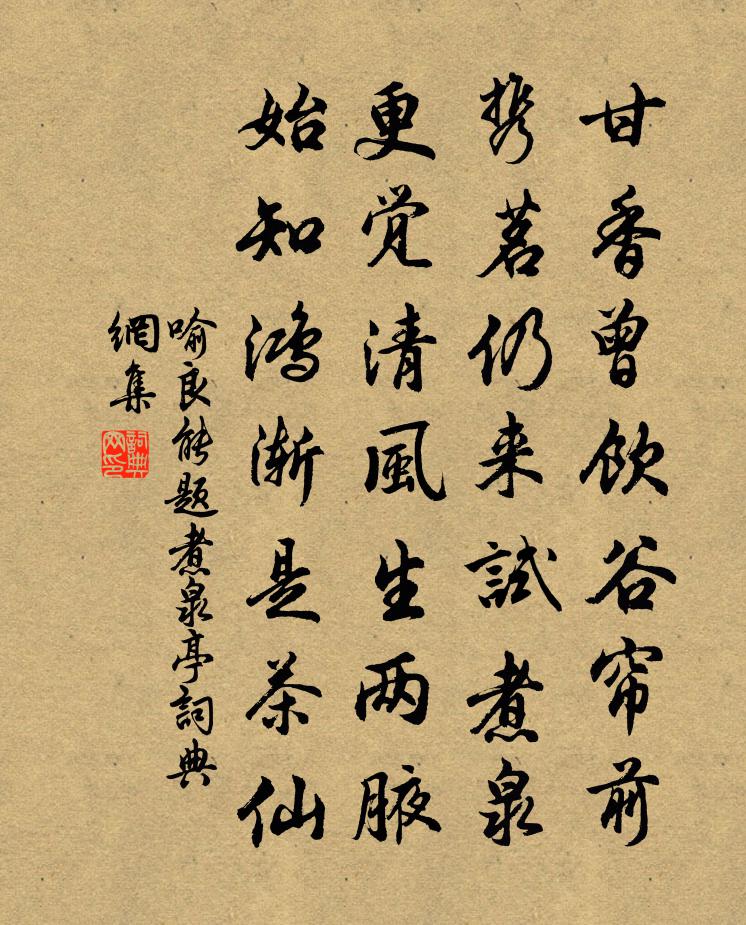 甘香曾飲谷帘前
携茗仍来試煮泉
更覚清風生两腋
始知鴻漸是茶仙
喻良能題煮泉亭詞典
網集
詞典
网印